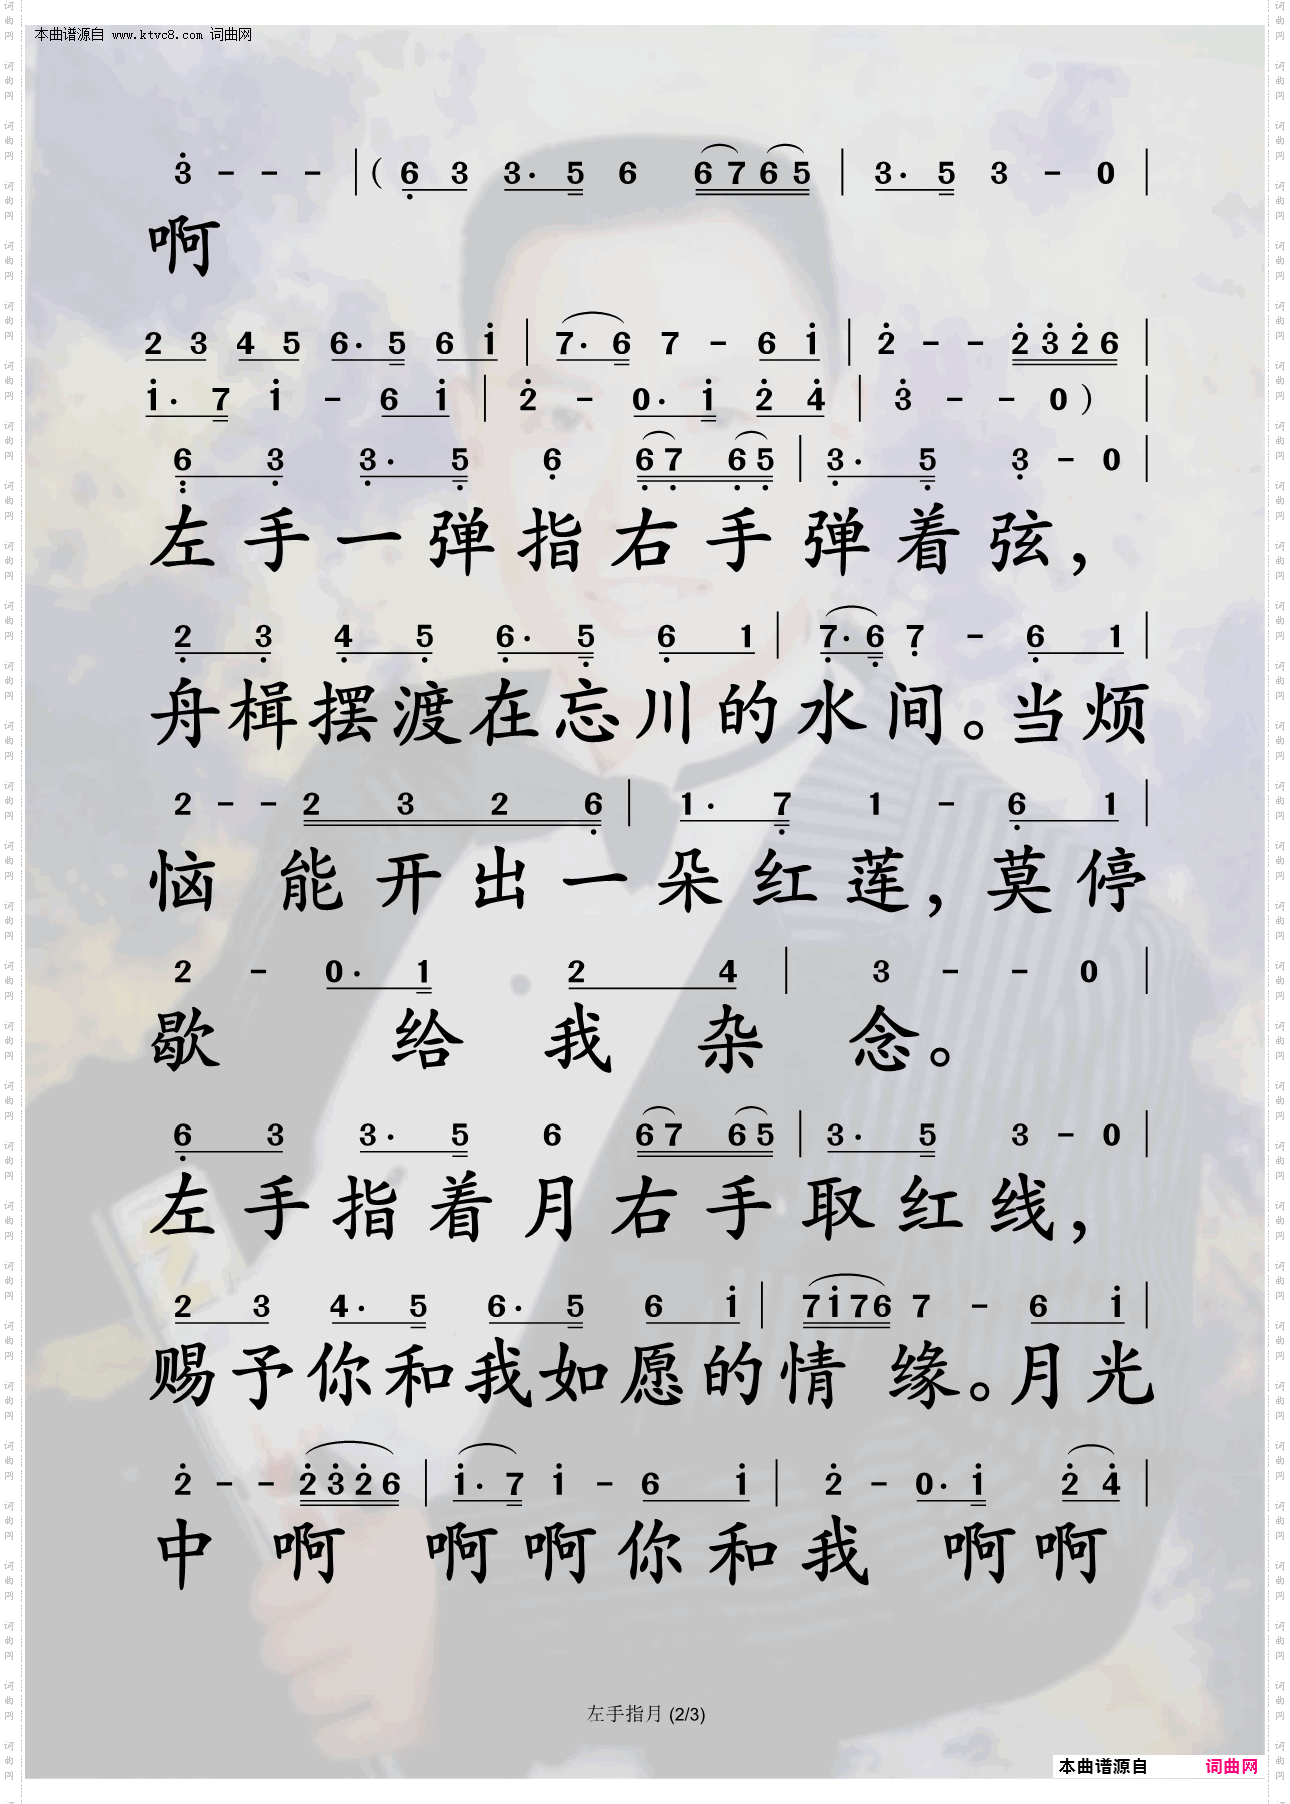 本曲谱源自 www.ktvc8.com 词曲网
3 - - - | ( 6 3 3. 5 6 6 7 6 5 | 3. 5 3 - 0 |
啊
2 3 4 5 6. 5 6 1 | 7. 6 7 - 6 1 | 2 - - 2 3 2 6 |
1. 7 1 - 6 1 | 2 - 0. 1 2 4 | 3 - - 0 ) |
6 3 3. 5 6 6 7 6 5 | 3. 5 3 - 0 |
左手一弹指右手弹着弦，
2 3 4 5 6. 5 6 1 | 7. 6 7 - 6 1 |
舟楫摆渡在忘川的水间。当烦
2 - - 2 3 2 6 | 1. 7 1 - 6 1 |
恼能开出一朵红莲，莫停
2 - 0. 1 2 4 | 3 - - 0 |
歇给我杂念。
6 3 3. 5 6 6 7 6 5 | 3. 5 3 - 0 |
左手指着月右手取红线，
2 3 4. 5 6. 5 6 1 | 7 1 7 6 7 - 6 1 |
赐予你和我如愿的情缘。月光
2 - - 2 3 2 6 | 1. 7 1 - 6 1 | 2 - 0. 1 2 4 |
中啊啊啊你和我啊啊
左手指月 (2/3)
本曲谱源自 词曲网